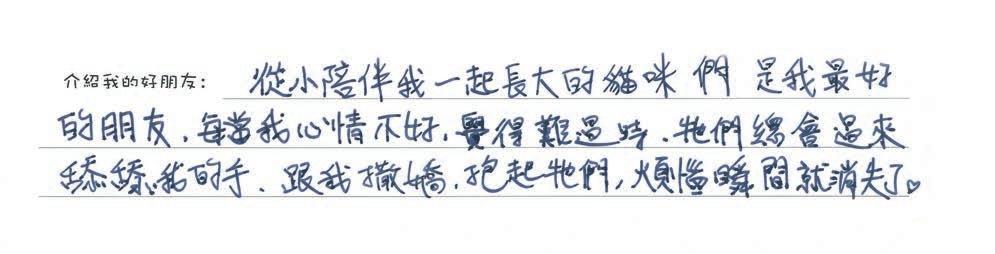 介紹我的好朋友： 從小陪伴我一起長大的貓咪們 是我最好
的朋友，每當我心情不好，覺得難過時，牠們總會過來
舔舔我的手、跟我撒嬌，抱起牠們，煩惱瞬間就消失了♡